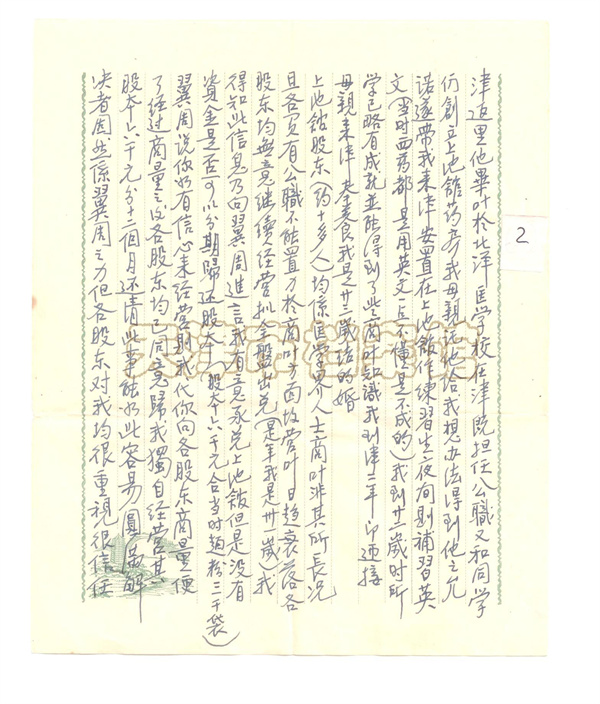 津返里他畢叶於北洋医学校在津既担任公職又和同学
们創立上池舘药房我母親託他给我想办法得到他之允
诺遂帶我来津安置在上池舘作練習生夜间則補習英
文(当时西药都是用英文一点不懂是不成的)我到廿二歲时所
学已略有成就並能得到了些商叶知識我到津二年即迎接
母親来津奉養我是廿三歲结的婚
上池舘股东(约十多人)均系医学界人士商叶非其所長况
且各负有公職不能置力於商叶方面故营叶日趋衰落各
股东均無意继续经营拟全盤出兑(是年我是廿一歲)我
得知此信息乃向翼周進言我有意承兑上池舘但是没有
资金是否可以分期歸还股本(股本六千元合当时麺粉三千袋)
翼周说你如有信心来经营則我代你向各股东商量便
了经过商量之後各股东均已同意歸我獨自经营其
股本六千元分十二個月还清此事能如此容易圓满解
决者固然係翼周之力但各股东对我均很重視很信任
2